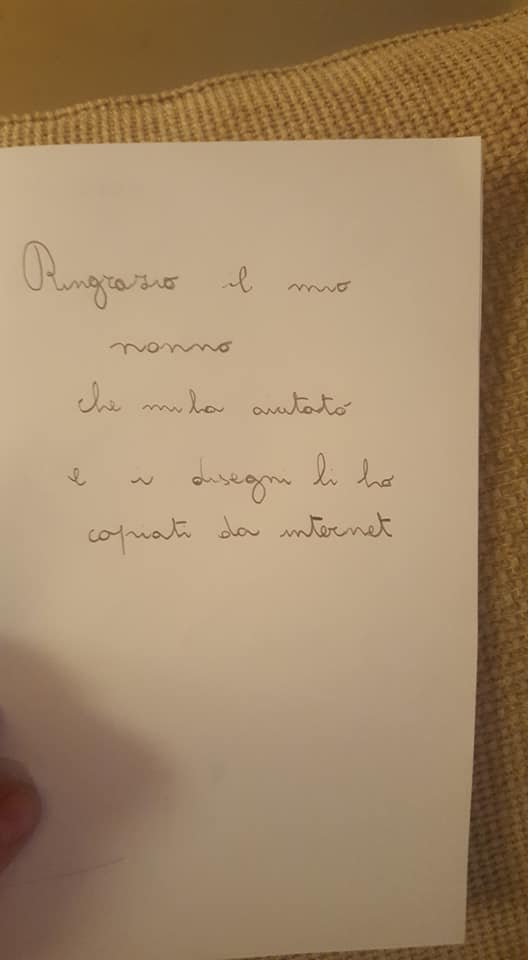 Ringrazio il mio
nonno
che mi ha aiutato
e i disegni li ho
copiati da internet